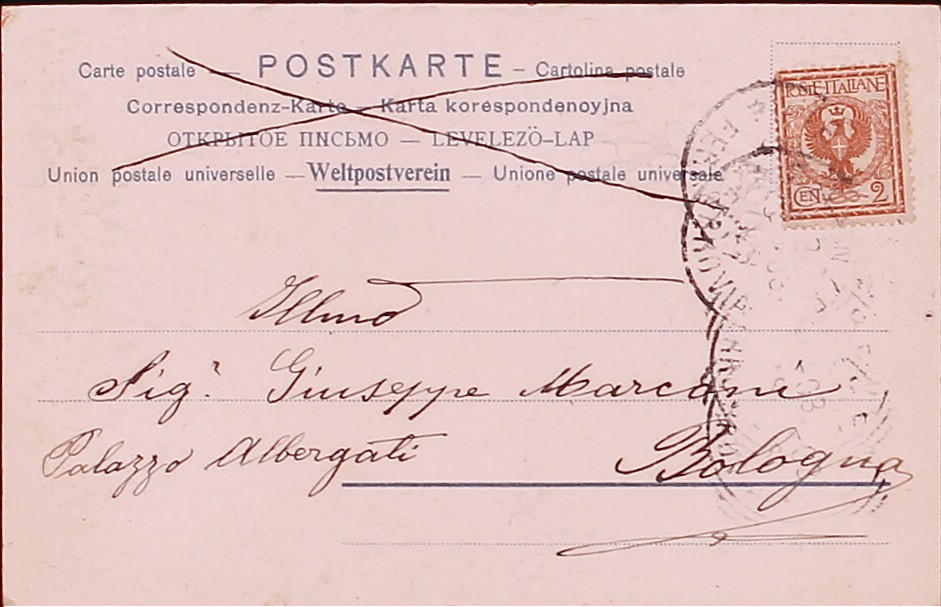 Carte postale — POSTKARTE — Cartolina postale
Correspondenz-Karte — Karta korespondenoyjna
ОТКРЫТОЕ ПИСЬМО — LEVELEZÖ-LAP
Union postale universelle — Weltpostverein — Unione postale universale
POSTE ITALIANE
CEN 2
Illmo
Sig.r Giuseppe Marconi
Palazzo Albergati Bologna